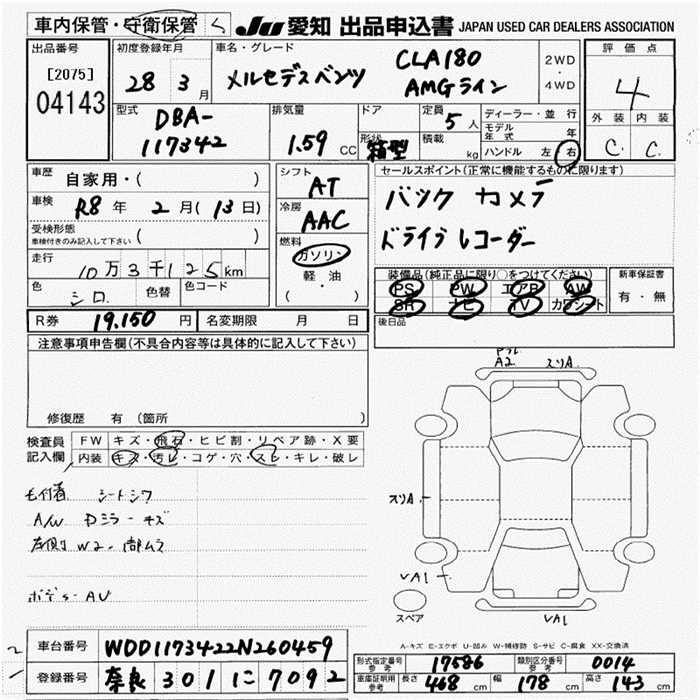 車内保管・守衛保管
JU 愛知 出品申込書 JAPAN USED CAR DEALERS ASSOCIATION
出品番号
[2075]
04143
初度登録年月
28 3 月
車名・グレード
メルセデスベンツ
CLA180
AMGライン
2WD
・
4WD
評価点
4
外装 内装
C C
型式
DBA-
117342
排気量
1.59 CC
ドア
形状
箱型
定員 5 人
積載 kg
ディーラー・並行
モデル年式 年
ハンドル 左 右
車歴 自家用・( )
車検 R8 年 2 月 ( 13 日)
受検形態
車検付きのみ記入して下さい ( )
走行 10万3千125km
色 シロ 色替 色コード
シフト AT
冷房 AAC
燃料
ガソリン
軽・油
( ・ )
セールスポイント(正常に機能するものに限ります)
バック カメラ
ドライブレコーダー
装備品(純正品に限り○をつけてください)
PS PW エアB AW
SR ナビ TV カワシート
新車保証書
有・無
後日品
R券 19.150 円 名変期限 月 日
注意事項申告欄(不具合内容等は具体的に記入して下さい)
修復歴 有 (箇所
検査員記入欄
FW キズ・飛石・ヒビ割・リペア跡・X要
内装 キズ・汚レ・コゲ・穴・スレ・キレ・破レ
シートシワ
A/W Dミラーキズ
左側 W2
A2 スリA
スリA
VA1
VA1
スペア
A-キズ E-エクボ U-凹み W-補修跡 S-サビ C-腐食 XX-交換済
車台番号 WDD1173422N260459
登録番号 奈良 301 に 7092
形式指定番号 参考 17586 類別区分番号 参考 0014
車庫証明用 参考 長さ 468 cm 幅 178 cm 高さ 143 cm